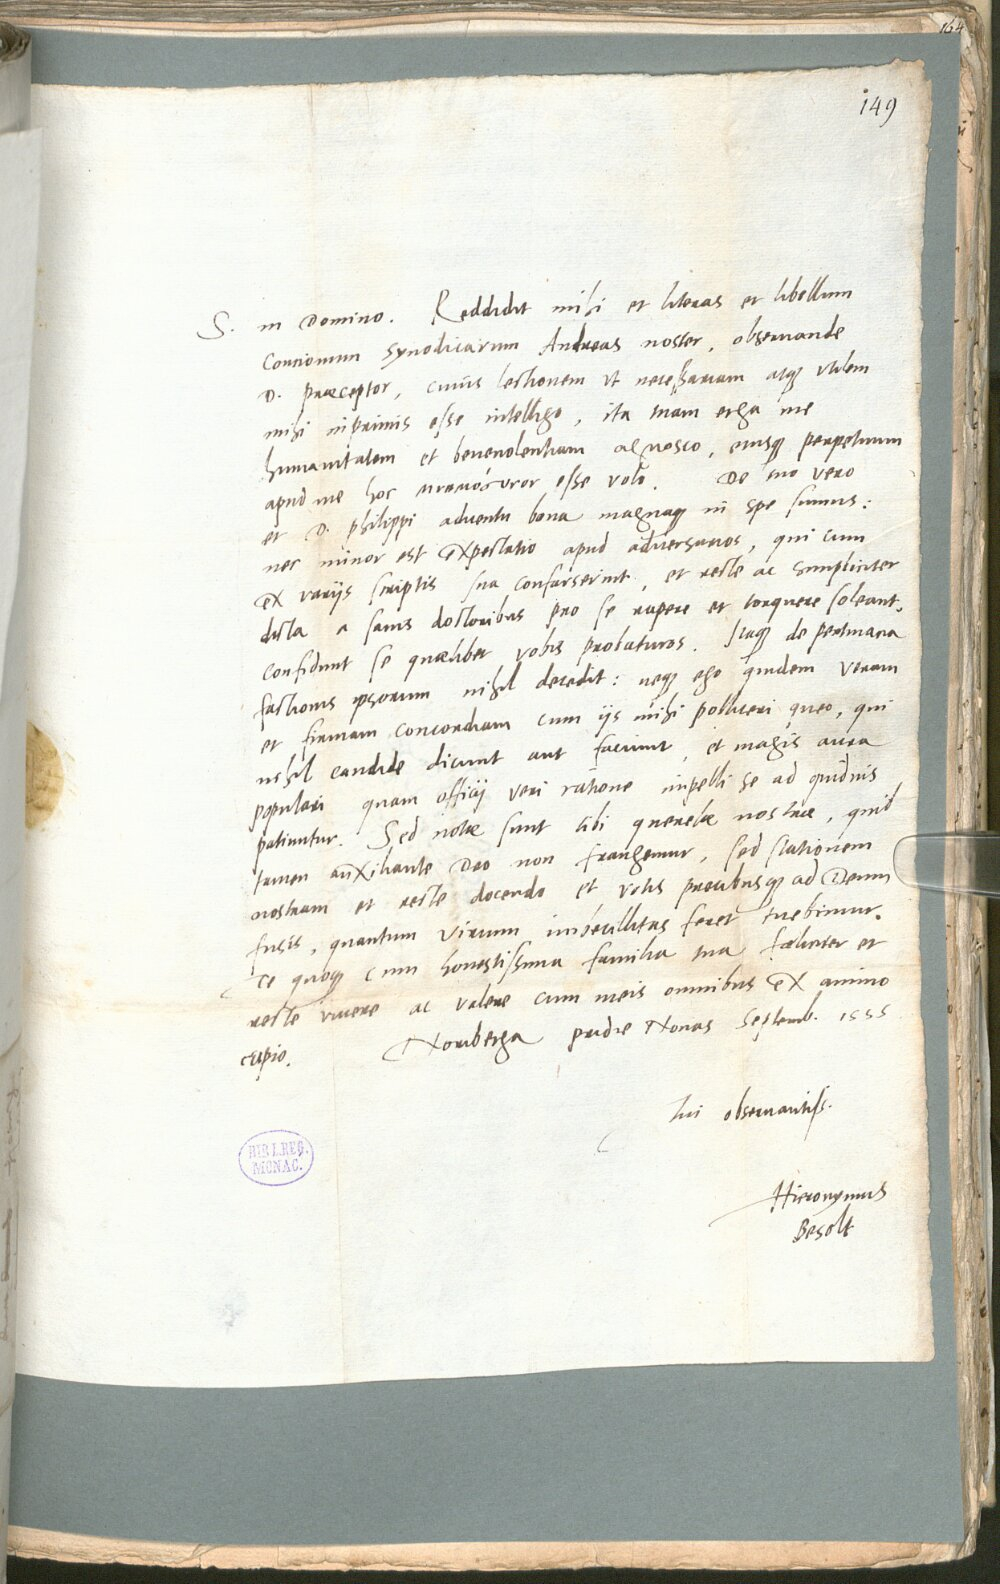 164
149
S. in Domino. Reddidit mihi et literas et libellum
Concionum Synodicarum Andreas noster, obseruande
D. Præceptor, cuius lectionem vt necessariam atq vtilem
mihi inprimis esse intelligo, ita tuam erga me
humanitatem et beneuolentiam agnosco, eiusq perpetuum
apud me hoc μνημόσυνον esse volo. De tuo vero
et D. Philippi aduentu bona magnaq in spe sumus:
nec minor est expectatio apud aduersarios, qui cum
ex varijs scriptis sua confarserint, et recte ac simpliciter
dicta a sanis doctoribus pro se rapere et torquere soleant,
confidunt se quælibet vobis probaturos. Itaq de pertinacia
factionis ipsorum nihil decedit: neq ego quidem veram
et firmam concordiam cum ijs mihi polliceri queo, qui
nihil candide dicunt aut faciunt, et magis aura
populari quam officij veri ratione impelli se ad quiduis
patiuntur. Sed notæ sunt tibi querelæ nostræ, quid
tamen auxiliante Deo non frangemur, sed stationem
nostram et recte docendo et votis precibusq ad Deum
fusis, quantum virium imbecillitas feret tuebimur.
Te quoq cum honestissima familia tua fœliciter et
recte viuere ac valere cum meis omnibus ex animo
cupio. Noriberga pridie Nonas Septemb. 1555
Tui obseruantiss.
Hieronymus
Besolt
BIBL.REG.
MONAC.